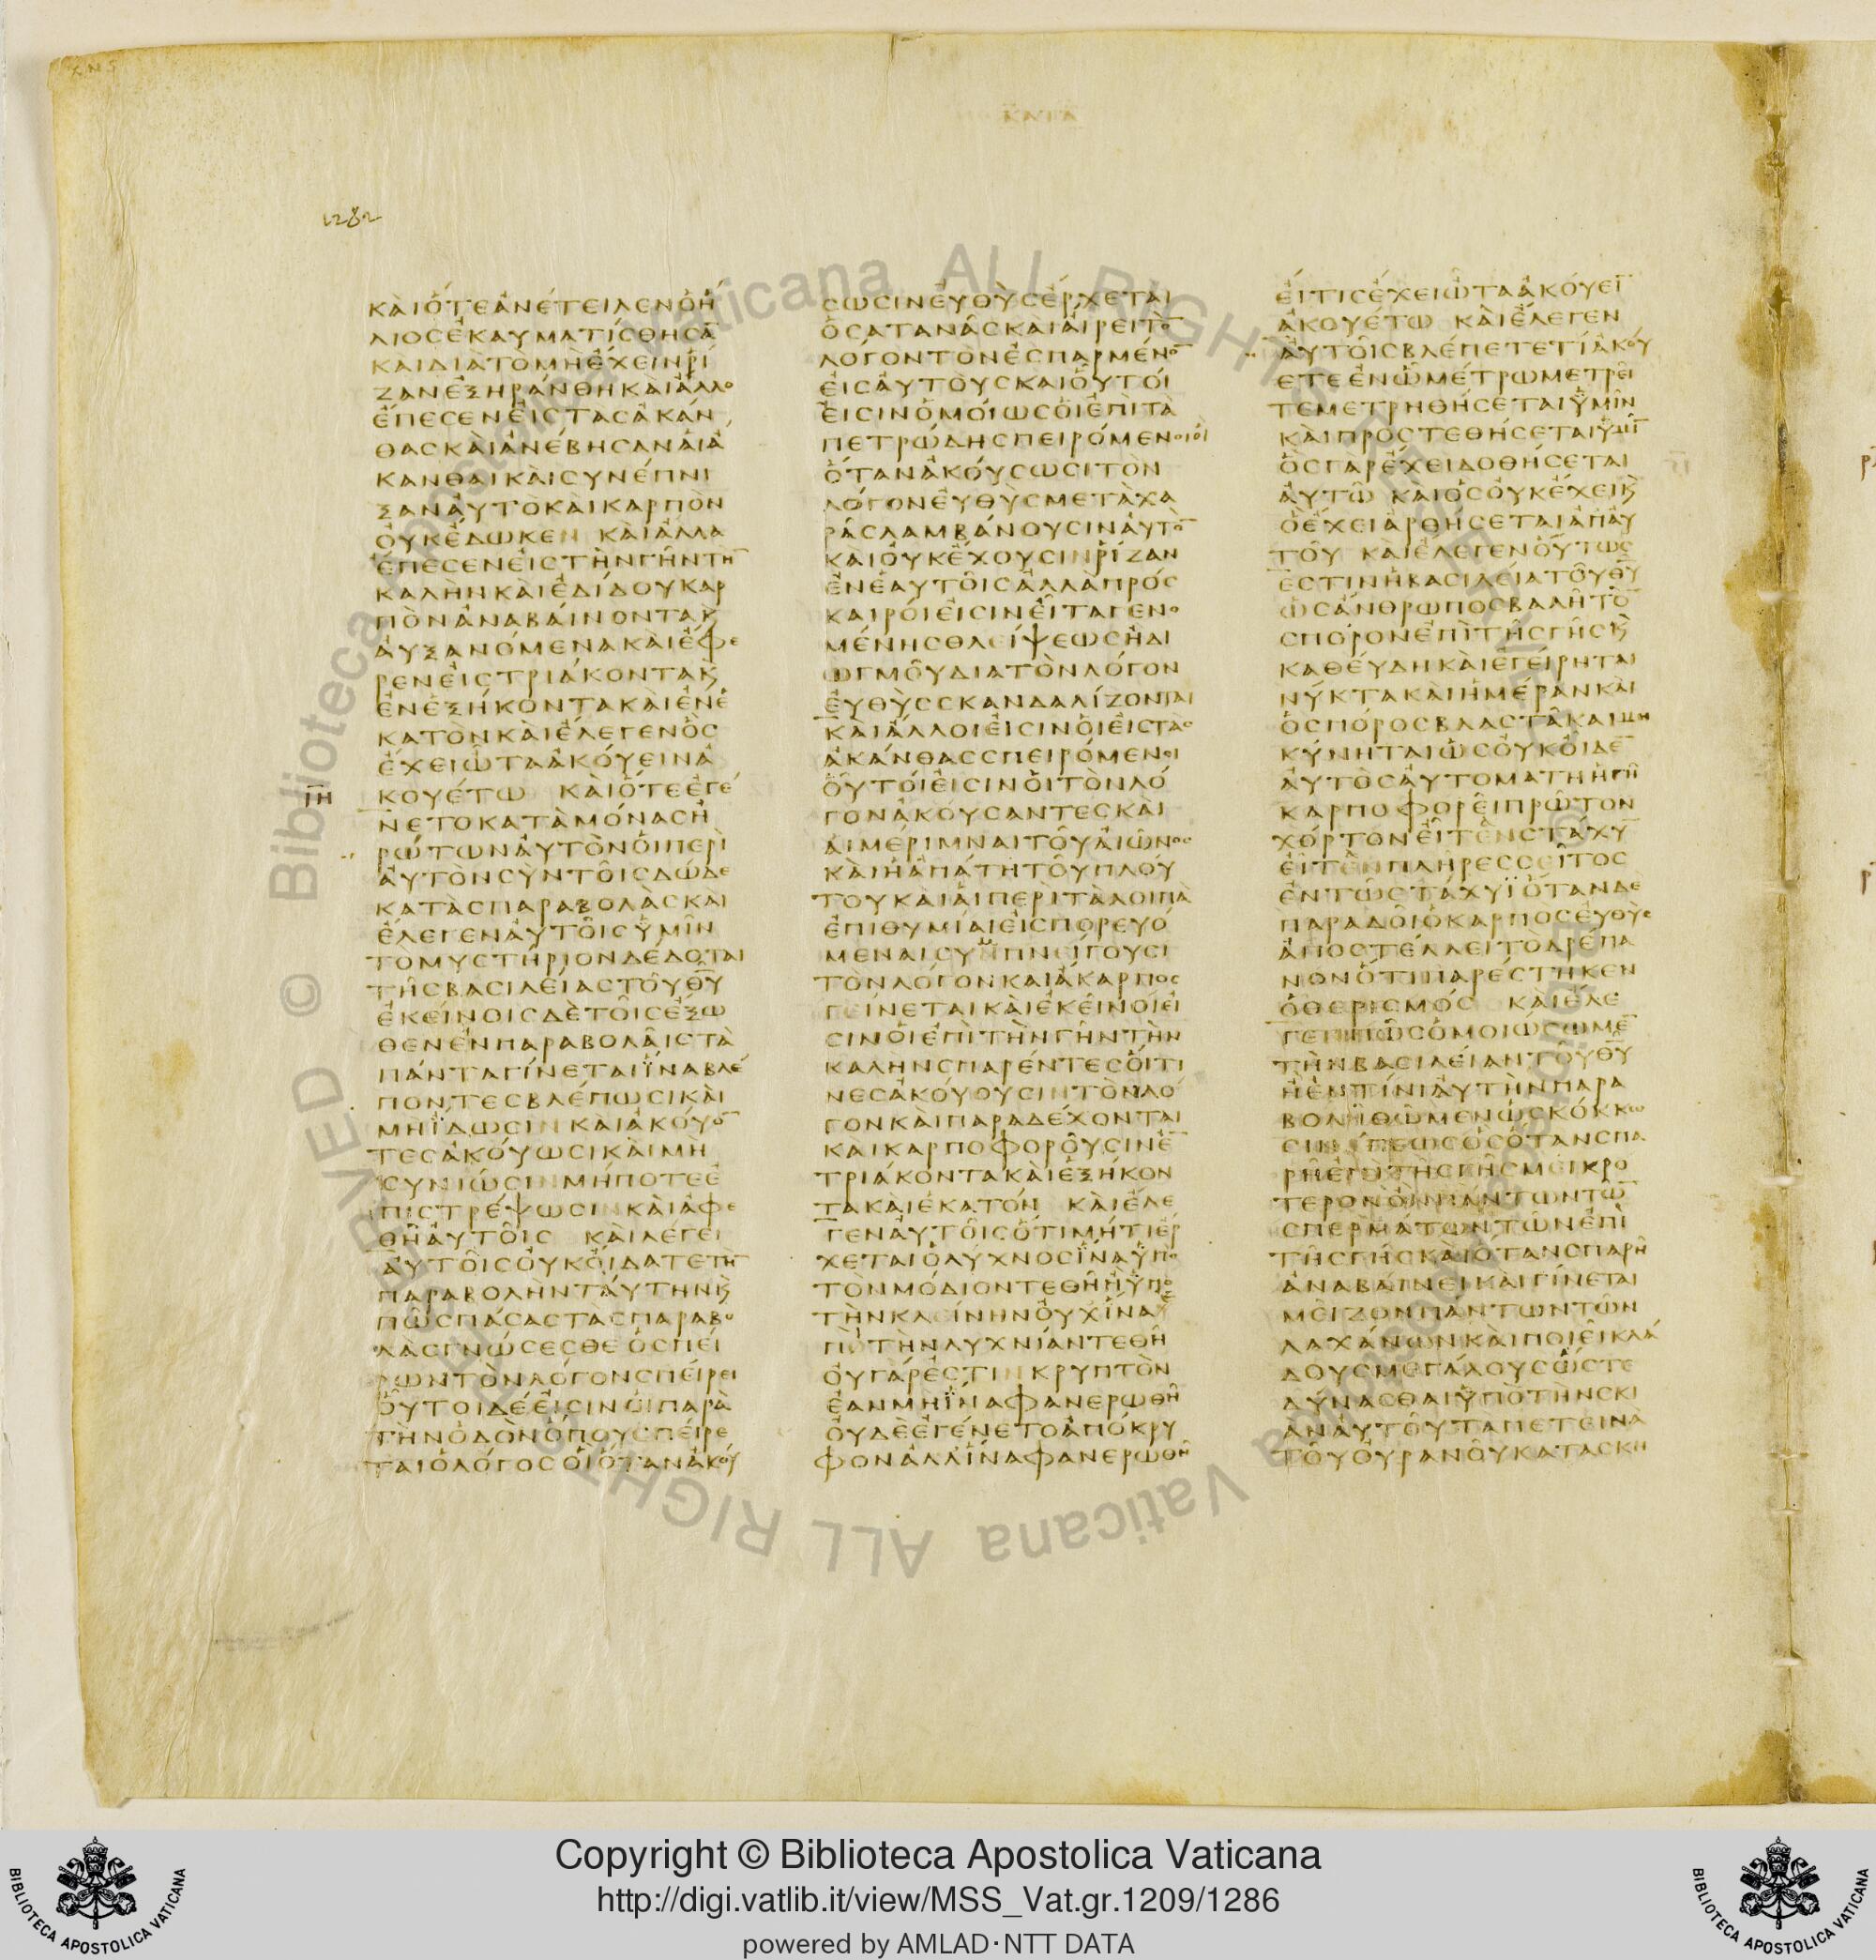 ΚΑΤΑ
1282
ΚΑΙΟΤΕΑΝΕΤΕΙΛΕΝΟΗ
ΛΙΟCΕΚΑΥΜΑΤΙCΘΗCΑ̅
ΚΑΙΔΙΑΤΟΜΗΕΧΕΙΝΡΙ
ΖΑΝΕΞΗΡΑΝΘΗΚΑΙΑΛΛΟ
ΕΠΕCΕΝΕΙCΤΑCΑΚΑΝ
ΘΑCΚΑΙΑΝΕΒΗCΑΝΑΙΑ
ΚΑΝΘΑΙΚΑΙCΥΝΕΠΝΙ
ΞΑΝΑΥΤΟΚΑΙΚΑΡΠΟΝ
ΟΥΚΕΔΩΚΕΝ ΚΑΙΑΛΛΑ
ΕΠΕCΕΝΕΙCΤΗΝΓΗΝΤΗ̅
ΚΑΛΗΝΚΑΙΕΔΙΔΟΥΚΑΡ
ΠΟΝΑΝΑΒΑΙΝΟΝΤΑΚ
ΑΥΞΑΝΟΜΕΝΑΚΑΙΕΦΕ
ΡΕΝΕΙCΤΡΙΑΚΟΝΤΑΚ
ΕΝΕΞΗΚΟΝΤΑΚΑΙΕΝΕ
ΚΑΤΟΝΚΑΙΕΛΕΓΕΝΟC
ΕΧΕΙΩΤΑΑΚΟΥΕΙΝΑ
ΚΟΥΕΤΩ ΚΑΙΟΤΕΕΓΕ
ΝΕΤΟΚΑΤΑΜΟΝΑCΗ
ΡΩΤΩΝΑΥΤΟΝΟΙΠΕΡΙ
ΑΥΤΟΝCΥΝΤΟΙCΔΩΔΕ
ΚΑΤΑCΠΑΡΑΒΟΛΑCΚΑΙ
ΕΛΕΓΕΝΑΥΤΟΙCΥΜΙΝ
ΤΟΜΥCΤΗΡΙΟΝΔΕΔΟΤΑΙ
ΤΗCΒΑCΙΛΕΙΑCΤΟΥΘ̅Υ̅
ΕΚΕΙΝΟΙCΔΕΤΟΙCΕΞΩ
ΘΕΝΕΝΠΑΡΑΒΟΛΑΙCΤΑ
ΠΑΝΤΑΓΙΝΕΤΑΙΪΝΑΒΛΕ
ΠΟΝΤΕCΒΛΕΠΩCΙΚΑΙ
ΜΗΪΔΩCΙΝΚΑΙΑΚΟΥΟ̅
ΤΕCΑΚΟΥΩCΙΚΑΙΜΗ
CΥΝΙΩCΙΝΜΗΠΟΤΕΕ
ΠΙCΤΡΕΨΩCΙΝΚΑΙΑΦΕ
ΘΗΑΥΤΟΙC ΚΑΙΛΕΓΕΙ
ΑΥΤΟΙCΟΥΚΟΙΔΑΤΕΤΗ̅
ΠΑΡΑΒΟΛΗΝΤΑΥΤΗΝΚ
ΠΩCΠΑCΑCΤΑCΠΑΡΑΒΟ
ΛΑCΓΝΩCΕCΘΕ ΟCΠΕΙ
ΡΩΝΤΟΝΛΟΓΟΝCΠΕΙΡΕΙ
ΟΥΤΟΙΔΕΕΙCΙΝΟΙΠΑΡΑ
ΤΗΝΟΔΟΝΟΠΟΥCΠΕΙΡΕ
ΤΑΙΟΛΟΓΟCΟΙΟΤΑΝΑΚΟΥ
CΩCΙΝΕΥΘΥCΕΡΧΕΤΑΙ
ΟCΑΤΑΝΑCΚΑΙΑΙΡΕΙΤΟ̅
ΛΟΓΟΝΤΟΝΕCΠΑΡΜΕΝΟ̅
ΕΙCΑΥΤΟΥCΚΑΙΟΥΤΟΙ
ΕΙCΙΝΟΜΟΙΩCΟΙΕΠΙΤΑ
ΠΕΤΡΩΔΗCΠΕΙΡΟΜΕΝΟΙΟΙ
ΟΤΑΝΑΚΟΥCΩCΙΤΟΝ
ΛΟΓΟΝΕΥΘΥCΜΕΤΑΧΑ
ΡΑCΛΑΜΒΑΝΟΥCΙΝΑΥΤΟ̅
ΚΑΙΟΥΚΕΧΟΥCΙΝΡΙΖΑΝ
ΕΝΕΑΥΤΟΙCΑΛΛΑΠΡΟC
ΚΑΙΡΟΙΕΙCΙΝΕΙΤΑΓΕΝΟ
ΜΕΝΗCΘΛΕΙΨΕΩCΗΔΙ
ΩΓΜΟΥΔΙΑΤΟΝΛΟΓΟΝ
ΕΥΘΥCCΚΑΝΔΑΛΙΖΟΝΤΑΙ
ΚΑΙΑΛΛΟΙΕΙCΙΝΟΙΕΙCΤΑC
ΑΚΑΝΘΑCCΠΕΙΡΟΜΕΝΟΙ
ΟΥΤΟΙΕΙCΙΝΟΙΤΟΝΛΟ
ΓΟΝΑΚΟΥCΑΝΤΕCΚΑΙ
ΑΙΜΕΡΙΜΝΑΙΤΟΥΑΙΩΝΟC
ΚΑΙΗΑΠΑΤΗΤΟΥΠΛΟΥ
ΤΟΥΚΑΙΑΙΠΕΡΙΤΑΛΟΙΠΑ
ΕΠΙΘΥΜΙΑΙΕΙCΠΟΡΕΥΟ
ΜΕΝΑΙCΥΝΠΝΕΙΓΟΥCΙ
ΤΟΝΛΟΓΟΝΚΑΙΑΚΑΡΠΟC
ΓΕΙΝΕΤΑΙΚΑΙΕΚΕΙΝΟΙΕΙ
CΙΝΟΙΕΠΙΤΗΝΓΗΝΤΗΝ
ΚΑΛΗΝCΠΑΡΕΝΤΕCΟΙΤΙ
ΝΕCΑΚΟΥΟΥCΙΝΤΟΝΛΟ
ΓΟΝΚΑΙΠΑΡΑΔΕΧΟΝΤΑΙ
ΚΑΙΚΑΡΠΟΦΟΡΟΥCΙΝΕ̅
ΤΡΙΑΚΟΝΤΑΚΑΙΕΞΗΚΟΝ
ΤΑΚΑΙΕΚΑΤΟΝ ΚΑΙΕΛΕ
ΓΕΝΑΥΤΟΙCΟΤΙΜΗΤΙΕΡ
ΧΕΤΑΙΟΛΥΧΝΟCΪΝΑΥΠΟ
ΤΟΝΜΟΔΙΟΝΤΕΘΗΗΥΠΟ
ΤΗΝΚΛΕΙΝΗΝΟΥΧΙΝΑΥ
ΠΟΤΗΝΛΥΧΝΙΑΝΤΕΘΗ
ΟΥΓΑΡΕCΤΙΝΚΡΥΠΤΟΝ
ΕΑΝΜΗΪΝΑΦΑΝΕΡΩΘΗ
ΟΥΔΕΕΓΕΝΕΤΟΑΠΟΚΡΥ
ΦΟΝΑΛΛΙΝΑΦΑΝΕΡΩΘΗ
ΕΙΤΙCΕΧΕΙΩΤΑΑΚΟΥΕΙ̅
ΑΚΟΥΕΤΩ ΚΑΙΕΛΕΓΕΝ
ΑΥΤΟΙCΒΛΕΠΕΤΕΤΙΑΚΟΥ
ΕΤΕΕΝΩΜΕΤΡΩΜΕΤΡΕΙ
ΤΕΜΕΤΡΗΘΗCΕΤΑΙΥΜΙΝ
ΚΑΙΠΡΟCΤΕΘΗCΕΤΑΙΥΜΙ̅
ΟCΓΑΡΕΧΕΙΔΟΘΗCΕΤΑΙ
ΑΥΤΩ ΚΑΙΟCΟΥΚΕΧΕΙΚ
ΟΕΧΕΙΑΡΘΗCΕΤΑΙΑΠΑΥ
ΤΟΥ ΚΑΙΕΛΕΓΕΝΟΥΤΩC
ΕCΤΙΝΗΒΑCΙΛΕΙΑΤΟΥΘ̅Υ̅
ΩCΑΝΘΡΩΠΟCΒΑΛΗΤΟ̅
CΠΟΡΟΝΕΠΙΤΗCΓΗCΚ
ΚΑΘΕΥΔΗΚΑΙΕΓΕΙΡΗΤΑΙ
ΝΥΚΤΑΚΑΙΗΜΕΡΑΝΚΑΙ
ΟCΠΟΡΟCΒΛΑCΤΑΚΑΙΜΗ
ΚΥΝΗΤΑΙΩCΟΥΚΟΙΔΕ̅
ΑΥΤΟCΑΥΤΟΜΑΤΗΗΓΗ
ΚΑΡΠΟΦΟΡΕΙΠΡΩΤΟΝ
ΧΟΡΤΟΝΕΙΤΕΝCΤΑΧΥ̅
ΕΙΤΕΝΠΛΗΡΕCCΕΙΤΟC
ΕΝΤΩCΤΑΧΥΪΟΤΑΝΔΕ
ΠΑΡΑΔΟΙΟΚΑΡΠΟCΕΥΘΥC
ΑΠΟCΤΕΛΛΕΙΤΟΔΡΕΠΑ
ΝΟΝΟΤΙΠΑΡΕCΤΗΚΕΝ
ΟΘΕΡΙCΜΟC ΚΑΙΕΛΕ
ΓΕΝΠΩCΟΜΟΙΩCΩΜΕ̅
ΤΗΝΒΑCΙΛΕΙΑΝΤΟΥΘ̅Υ̅
ΗΕΝΤΙΝΙΑΥΤΗΝΠΑΡΑ
ΒΟΛΗΘΩΜΕΝΩCΚΟΚΚΩ
CΙΝΑΠΕΩCΟCΟΤΑΝCΠΑ
ΡΗΕΠΙΤΗCΓΗCΜΕΙΚΡΟ
ΤΕΡΟΝΟΝΠΑΝΤΩΝΤΩ̅
CΠΕΡΜΑΤΩΝΤΩΝΕΠΙ
ΤΗCΓΗCΚΑΙΟΤΑΝCΠΑΡΗ
ΑΝΑΒΑΙΝΕΙΚΑΙΓΙΝΕΤΑΙ
ΜΕΙΖΟΝΠΑΝΤΩΝΤΩΝ
ΛΑΧΑΝΩΝΚΑΙΠΟΙΕΙΚΛΑ
ΔΟΥCΜΕΓΑΛΟΥCΩCΤΕ
ΔΥΝΑCΘΑΙΥΠΟΤΗΝCΚΙ
ΑΝΑΥΤΟΥΤΑΠΕΤΕΙΝΑ
ΤΟΥΟΥΡΑΝΟΥΚΑΤΑCΚΗ
Copyright © Biblioteca Apostolica Vaticana
http://digi.vatlib.it/view/MSS_Vat.gr.1209/1286
powered by AMLAD·NTT DATA
BIBLIOTECA APOSTOLICA VATICANA
BIBLIOTECA APOSTOLICA VATICANA